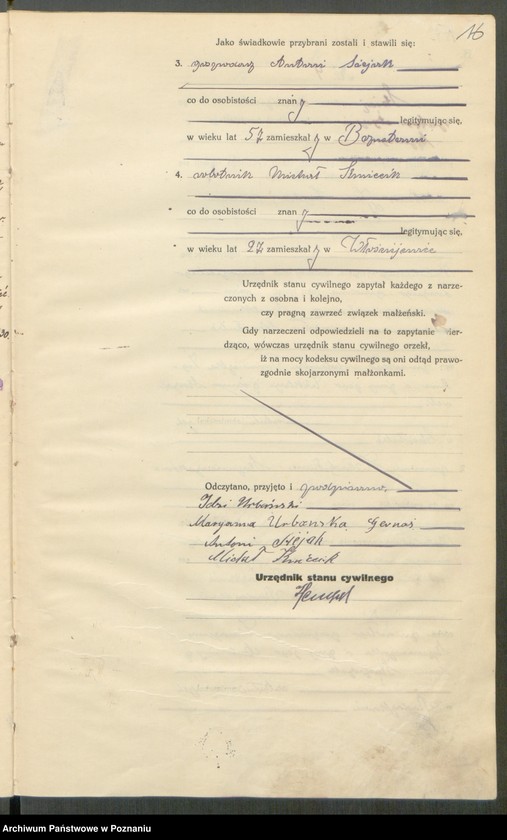 16
Jako świadkowie przybrani zostali i stawili się:
3. gospodarz Antoni Siejak
co do osobistości znany
legitymując się,
w wieku lat 57 zamieszkały w
4. robotnik Michał
co do osobistości znany
legitymując się,
w wieku lat 27 zamieszkały w Włościejewice
Urzędnik stanu cywilnego zapytał każdego z narze-
czonych z osobna i kolejno,
czy pragną zawrzeć związek małżeński.
Gdy narzeczeni odpowiedzieli na to zapytanie wier-
dząco, wówczas urzędnik stanu cywilnego orzekł,
iż na mocy kodeksu cywilnego są oni odtąd prawo-
zgodnie skojarzonymi małżonkami.
Odczytano, przyjęto i podpisano.
Idzi Urbański
Maryanna Urbańska
Antoni Siejak
Michał
Urzędnik stanu cywilnego
Archiwum Państwowe w Poznaniu